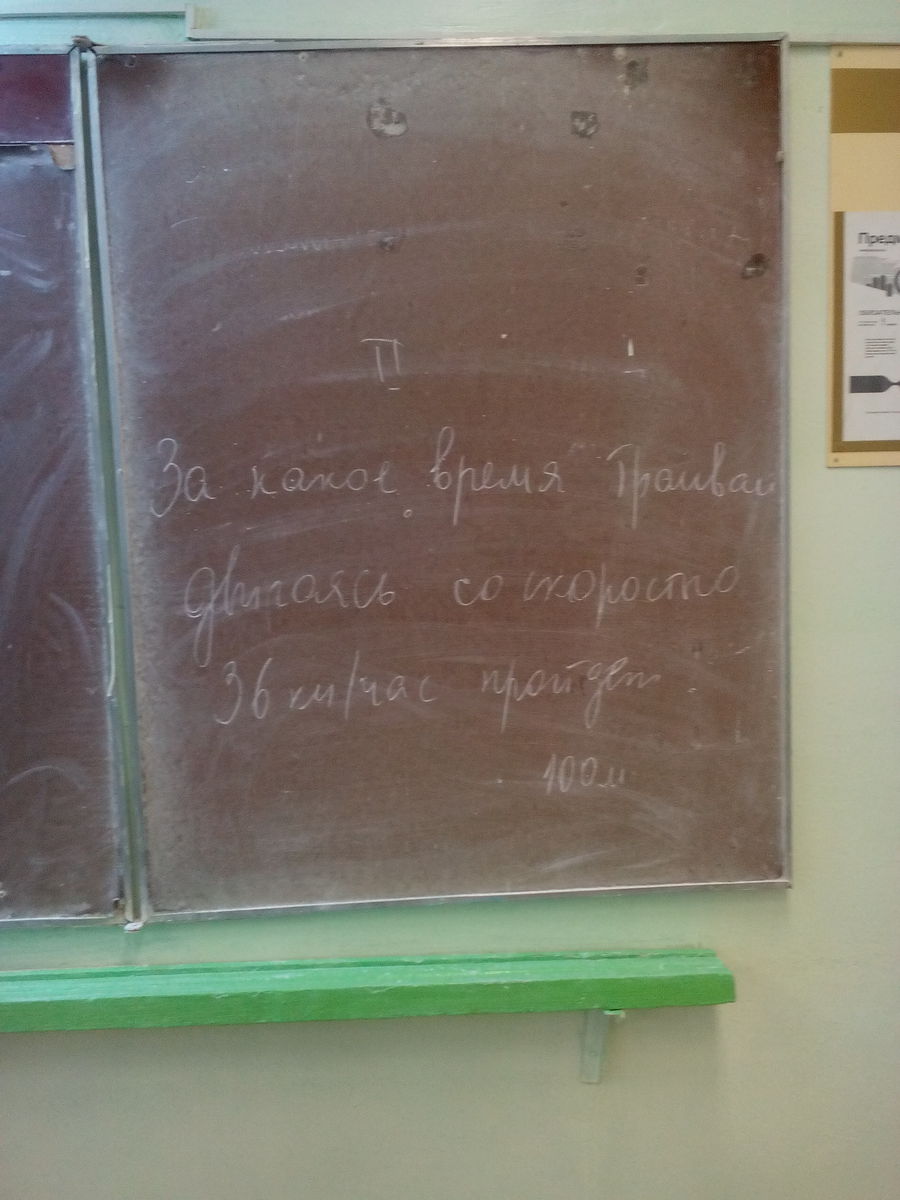 II
За какое время трамвай
двигаясь со скоростью
36 км/час пройдет
100м
Предм